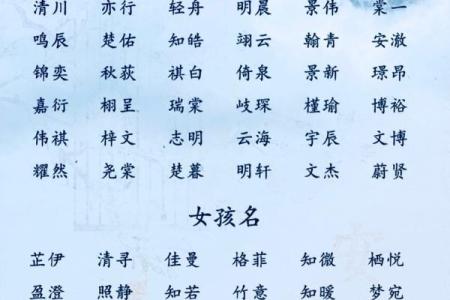 清川 亦行 轻舟 明晨 景伟 棠一
鸣辰 楚佑 知皓 翊云 翰青 安澈
锦奕 秋荻 祺白 倚泉 景新 璟昂
嘉衍 栩呈 瑞棠 岐琛 槿瑜 博裕
伟祺 梓文 志明 云海 宇辰 文博
耀然 尧棠 楚暮 明轩 文杰 蔚贤
女孩名
芷伊 清寻 佳曼 格菲 知微 栖悦
盈澄 照静 知若 竹意 知暖 梦宛